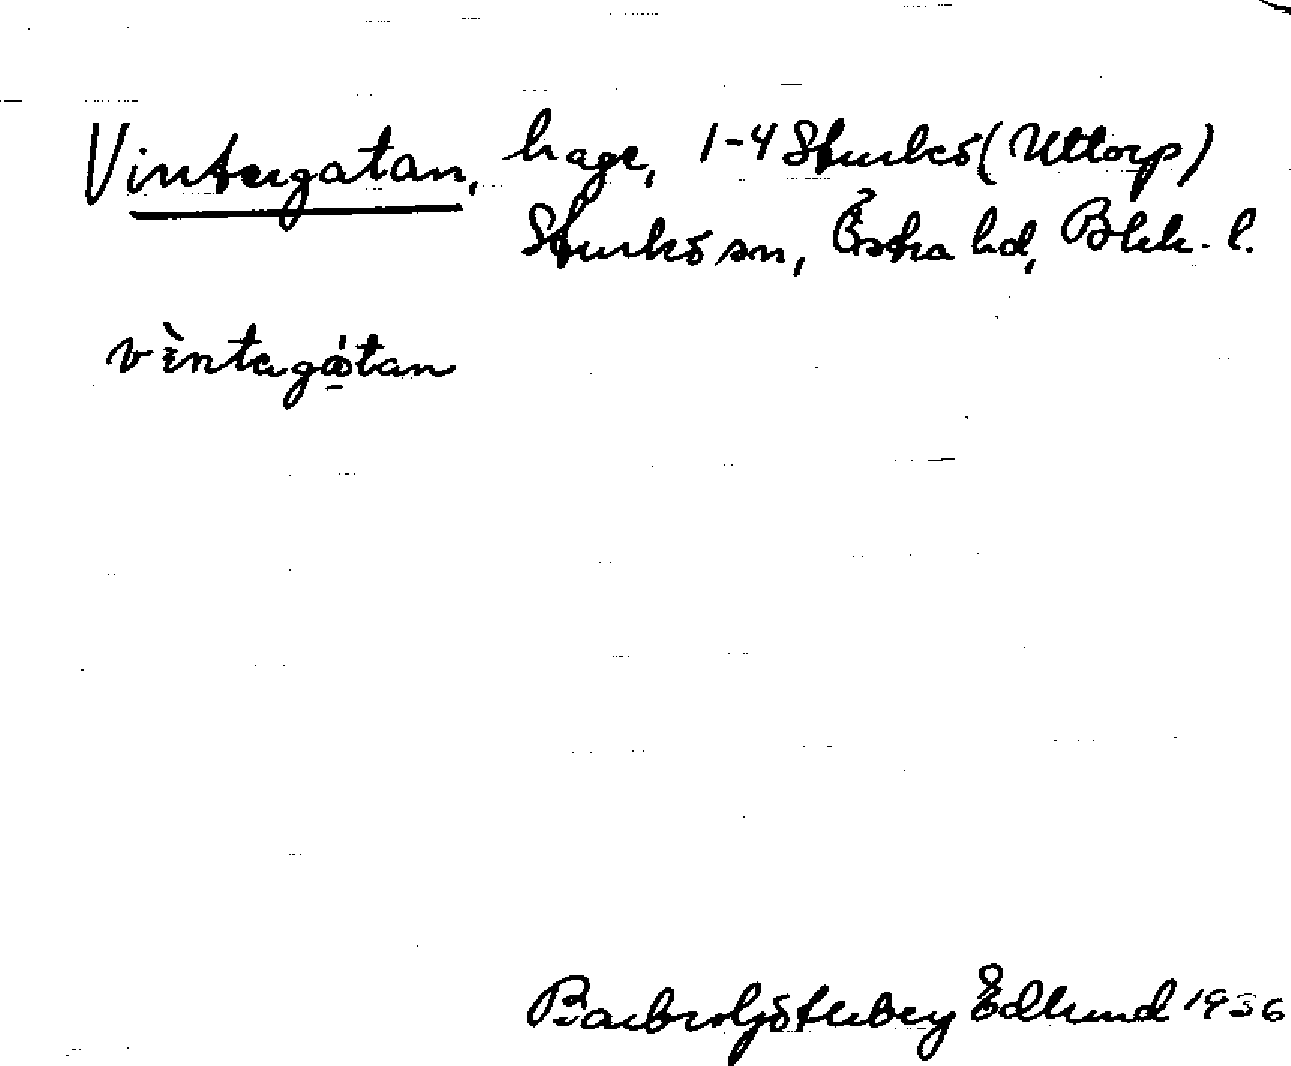 Vintergatan, hage, 1-4 Sturkö (Uttorp)
Sturkö sn, Östra hd, Blek. l.
vìntagátan
Barbro Götlberg Edlund 1936